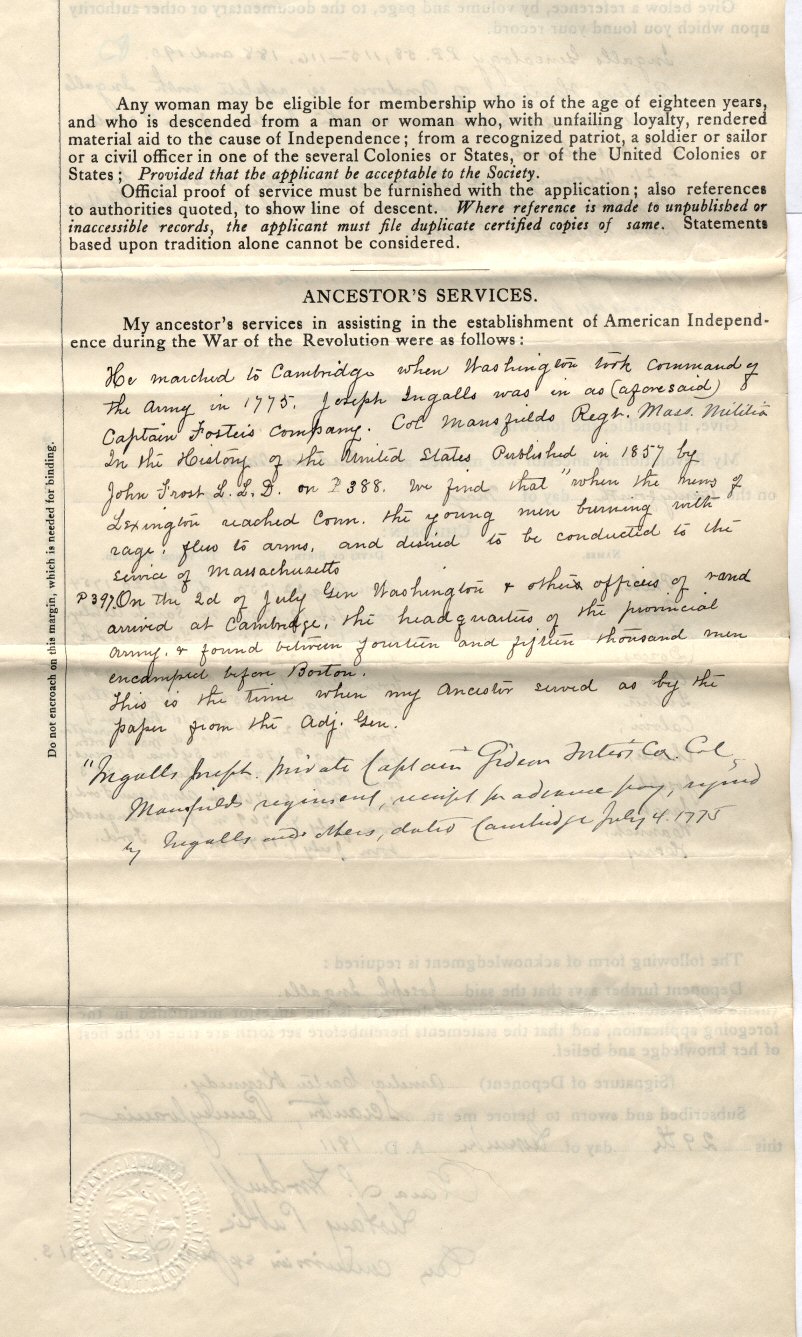 Any woman may be eligible for membership who is of the age of eighteen years,
and who is descended from a man or woman who, with unfailing loyalty, rendered
material aid to the cause of Independence; from a recognized patriot, a soldier or sailor
or a civil officer in one of the several Colonies or States, or of the United Colonies or
States; Provided that the applicant be acceptable to the Society.
Official proof of service must be furnished with the application; also references
to authorities quoted, to show line of descent. Where reference is made to unpublished or
inaccessible records, the applicant must file duplicate certified copies of same. Statements
based upon tradition alone cannot be considered.
ANCESTOR'S SERVICES.
My ancestor's services in assisting in the establishment of American Independ-
ence during the War of the Revolution were as follows:
He marched to Cambridge when Washington took command of
the army in 1775. Joseph Ingalls was in as (aforesaid)
Captain Foster's Company. Col Mansfields Regt. Mass. Militia
In the History of the United States Published in 1857 by
John Frost L.L.D. on P 388. We find that "when the news of
Lexington reached Conn. the young men burning with
rage; flew to arms, and desired to be conducted to the
service of Massachusetts
P397. On the 2d of July Gen Washington & others officers of rand
arrived at Cambridge, the headquarters of the provincial
army. & found between fourteen and fifteen thousand men
encamped before Boston.
This is the time when my Ancestor served as by the
paper from the Adj. Gen.
"Ingalls Joseph. private Captain Gideon Foster's Co. Col
Mansfields regiment, receipt for advance pay, signed
by Ingalls and others, dated Cambridge July 4. 1775
Do not encroach on this margin, which is needed for binding.